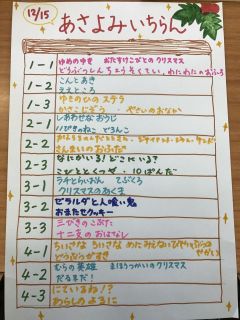 12/15
あさよみいちらん
1-1
ゆめのゆき おたすけこびとのクリスマス
どうぶつしんちょうそくてい、わたわたのおふろ
1-2
こんとあき
ええところ
1-3
ゆきのひの ステラ
かさこじぞう やさいのおなか
2-1
しあわせな おうじ
ハびきのねこ どろんこ
2-2
さんまいのおふだ
2-3
なにがいる!どこにいる?
こびととくつや・10ぱんだ
3-1
ラチとらいおん てぶくろ
クリスマスのねこ
3-2
ピラルダと人喰い鬼
おまたせクッキー
3-3
三びきのこぶた
十二支のおはなし
4-1
ちいさな ちいさな
4-2
むらの英雄 まほうつかいのクリスマス
だるまだ!
4-3
にているね!?
わらしのように